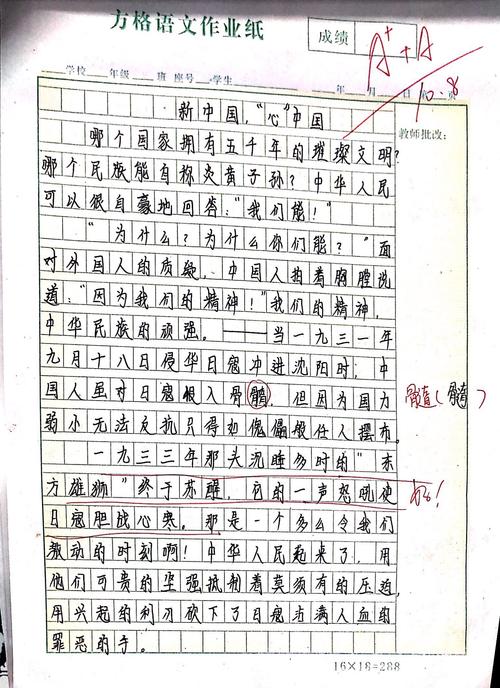 方格语文作业纸
成绩
A⁺+A
学校 年级 班 座号 学生 年 月 日 页
10.8
教师批改：
新中国，“心”中国
哪个国家拥有五千年的璀璨文明？
哪个民族能自称炎黄子孙？中华人民
可以很自豪地回答：“我们能！”
“为什么？为什么你们能？”面
对外国人的质疑，中国人拍着胸膛说
道：“因为我们的精神！”我们的精神，
中华民族的顽强。——当一九三一年
九月十八日侵华日鬼冲进沈阳时，中
国人虽对日鬼恨入骨髓，但因为国力
髓（髓）
弱小无法反抗只得如傀儡般任人摆布。
一九三三年那头沉睡多时的“东
方雄狮”终于苏醒，它的一声怒吼使
日鬼胆战心寒。那是一个多么令我们
激动的时刻啊！中华人民起来了，用
他们可贵的坚强抵制着莫须有的压迫，
用兴起的利刃砍下了日鬼沾满人血的
罪恶的手。
16×18=288